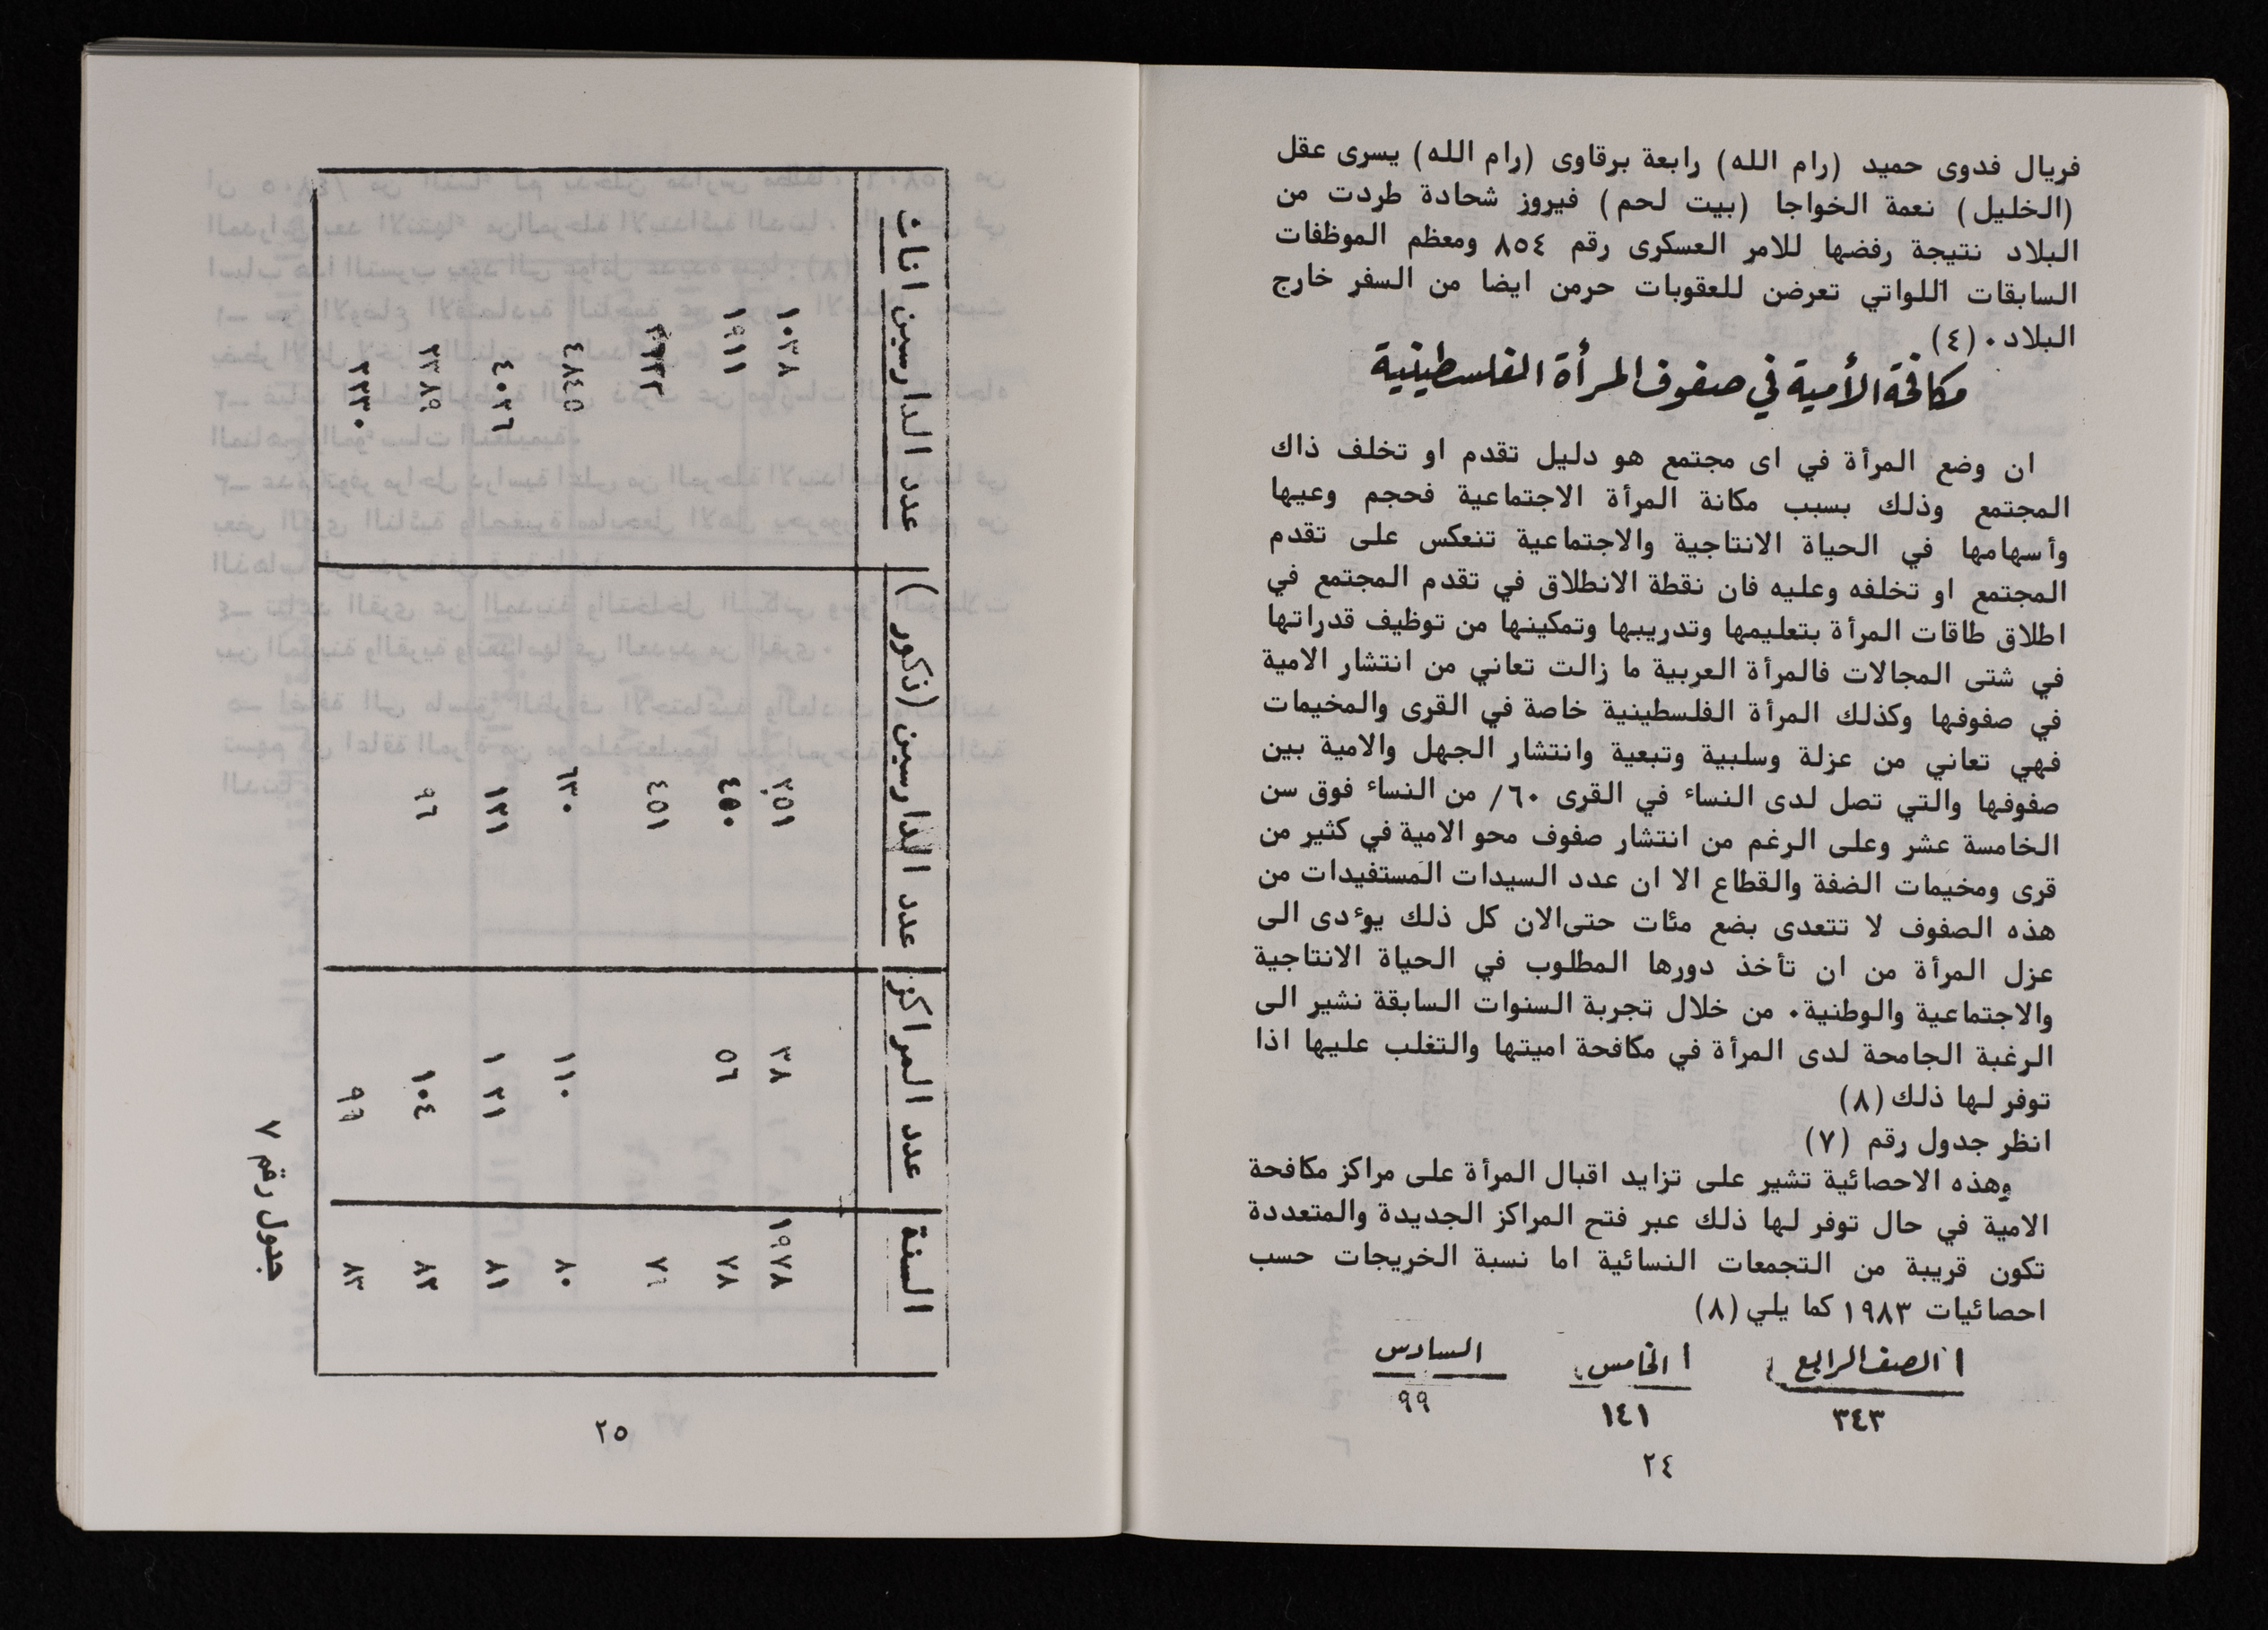 فريال فدوى حميد (رام الله) رابعة برقاوى (رام الله) يسرى عقل
(الخليل) نعمة الخواجا (بيت لحم) فيروز شحادة طردت من
البلاد نتيجة رفضها للامر العسكرى رقم ٨٥٤ ومعظم الموظفات
السابقات اللواتي تعرضن للعقوبات حرمن ايضا من السفر خارج
البلاد٠ (٤)
مكافحة الأمية في صفوف المرأة الفلسطينية
ان وضع المرأة في اى مجتمع هو دليل تقدم او تخلف ذاك
المجتمع وذلك بسبب مكانة المرأة الاجتماعية فحجم وعيها
وأسهامها في الحياة الانتاجية والاجتماعية تنعكس على تقدم
المجتمع او تخلفه وعليه فان نقطة الانطلاق في تقدم المجتمع في
اطلاق طاقات المرأة بتعليمها وتدريبها وتمكينها من توظيف قدراتها
في شتى المجالات فالمرأة العربية ما زالت تعاني من انتشار الامية
في صفوفها وكذلك المرأة الفلسطينية خاصة في القرى والمخيمات
فهي تعاني من عزلة وسلبية وتبعية وانتشار الجهل والامية بين
صفوفها والتي تصل لدى النساء في القرى ٦٠/ من النساء فوق سن
الخامسة عشر وعلى الرغم من انتشار صفوف محو الامية في كثير من
قرى ومخيمات الضفة والقطاع الا ان عدد السيدات المستفيدات من
هذه الصفوف لا تتعدى بضع مئات حتى الان كل ذلك يوءدى الى
عزل المرأة من ان تأخذ دورها المطلوب في الحياة الانتاجية
والاجتماعية والوطنية٠ من خلال تجربة السنوات السابقة نشير الى
الرغبة الجامحة لدى المرأة في مكافحة اميتها والتغلب عليها اذا
توفر لها ذلك (٨)
انظر جدول رقم (٧)
وهذه الاحصائية تشير على تزايد اقبال المرأة على مراكز مكافحة
الامية في حال توفر لها ذلك عبر فتح المراكز الجديدة والمتعددة
تكون قريبة من التجمعات النسائية اما نسبة الخريجات حسب
احصائيات ١٩٨٣ كما يلي (٨)
الصف الرابع الخامس السادس
٣٤٣ ١٤١ ٩٩
٢٤
السنة عدد المراكز عدد الدارسين (ذكور) عدد الدارسين اناث
١٩٧٨ ٣٨ ٣٥١ ١٠٣٨
٧٨ ٥٦ ٤٥٠ ١٩١١
٧٩ ٤٥١
٨٠ ١١٠ ٦٣٠ ٤٨٤٥
٨١ ١٣١ ١٣١ ٤٠٣٦
٨٢ ١٠٤ ٩٦ ٣٣٨٩
٨٣ ٩٩ ٣٣٣٠
جدول رقم ٧
٢٥